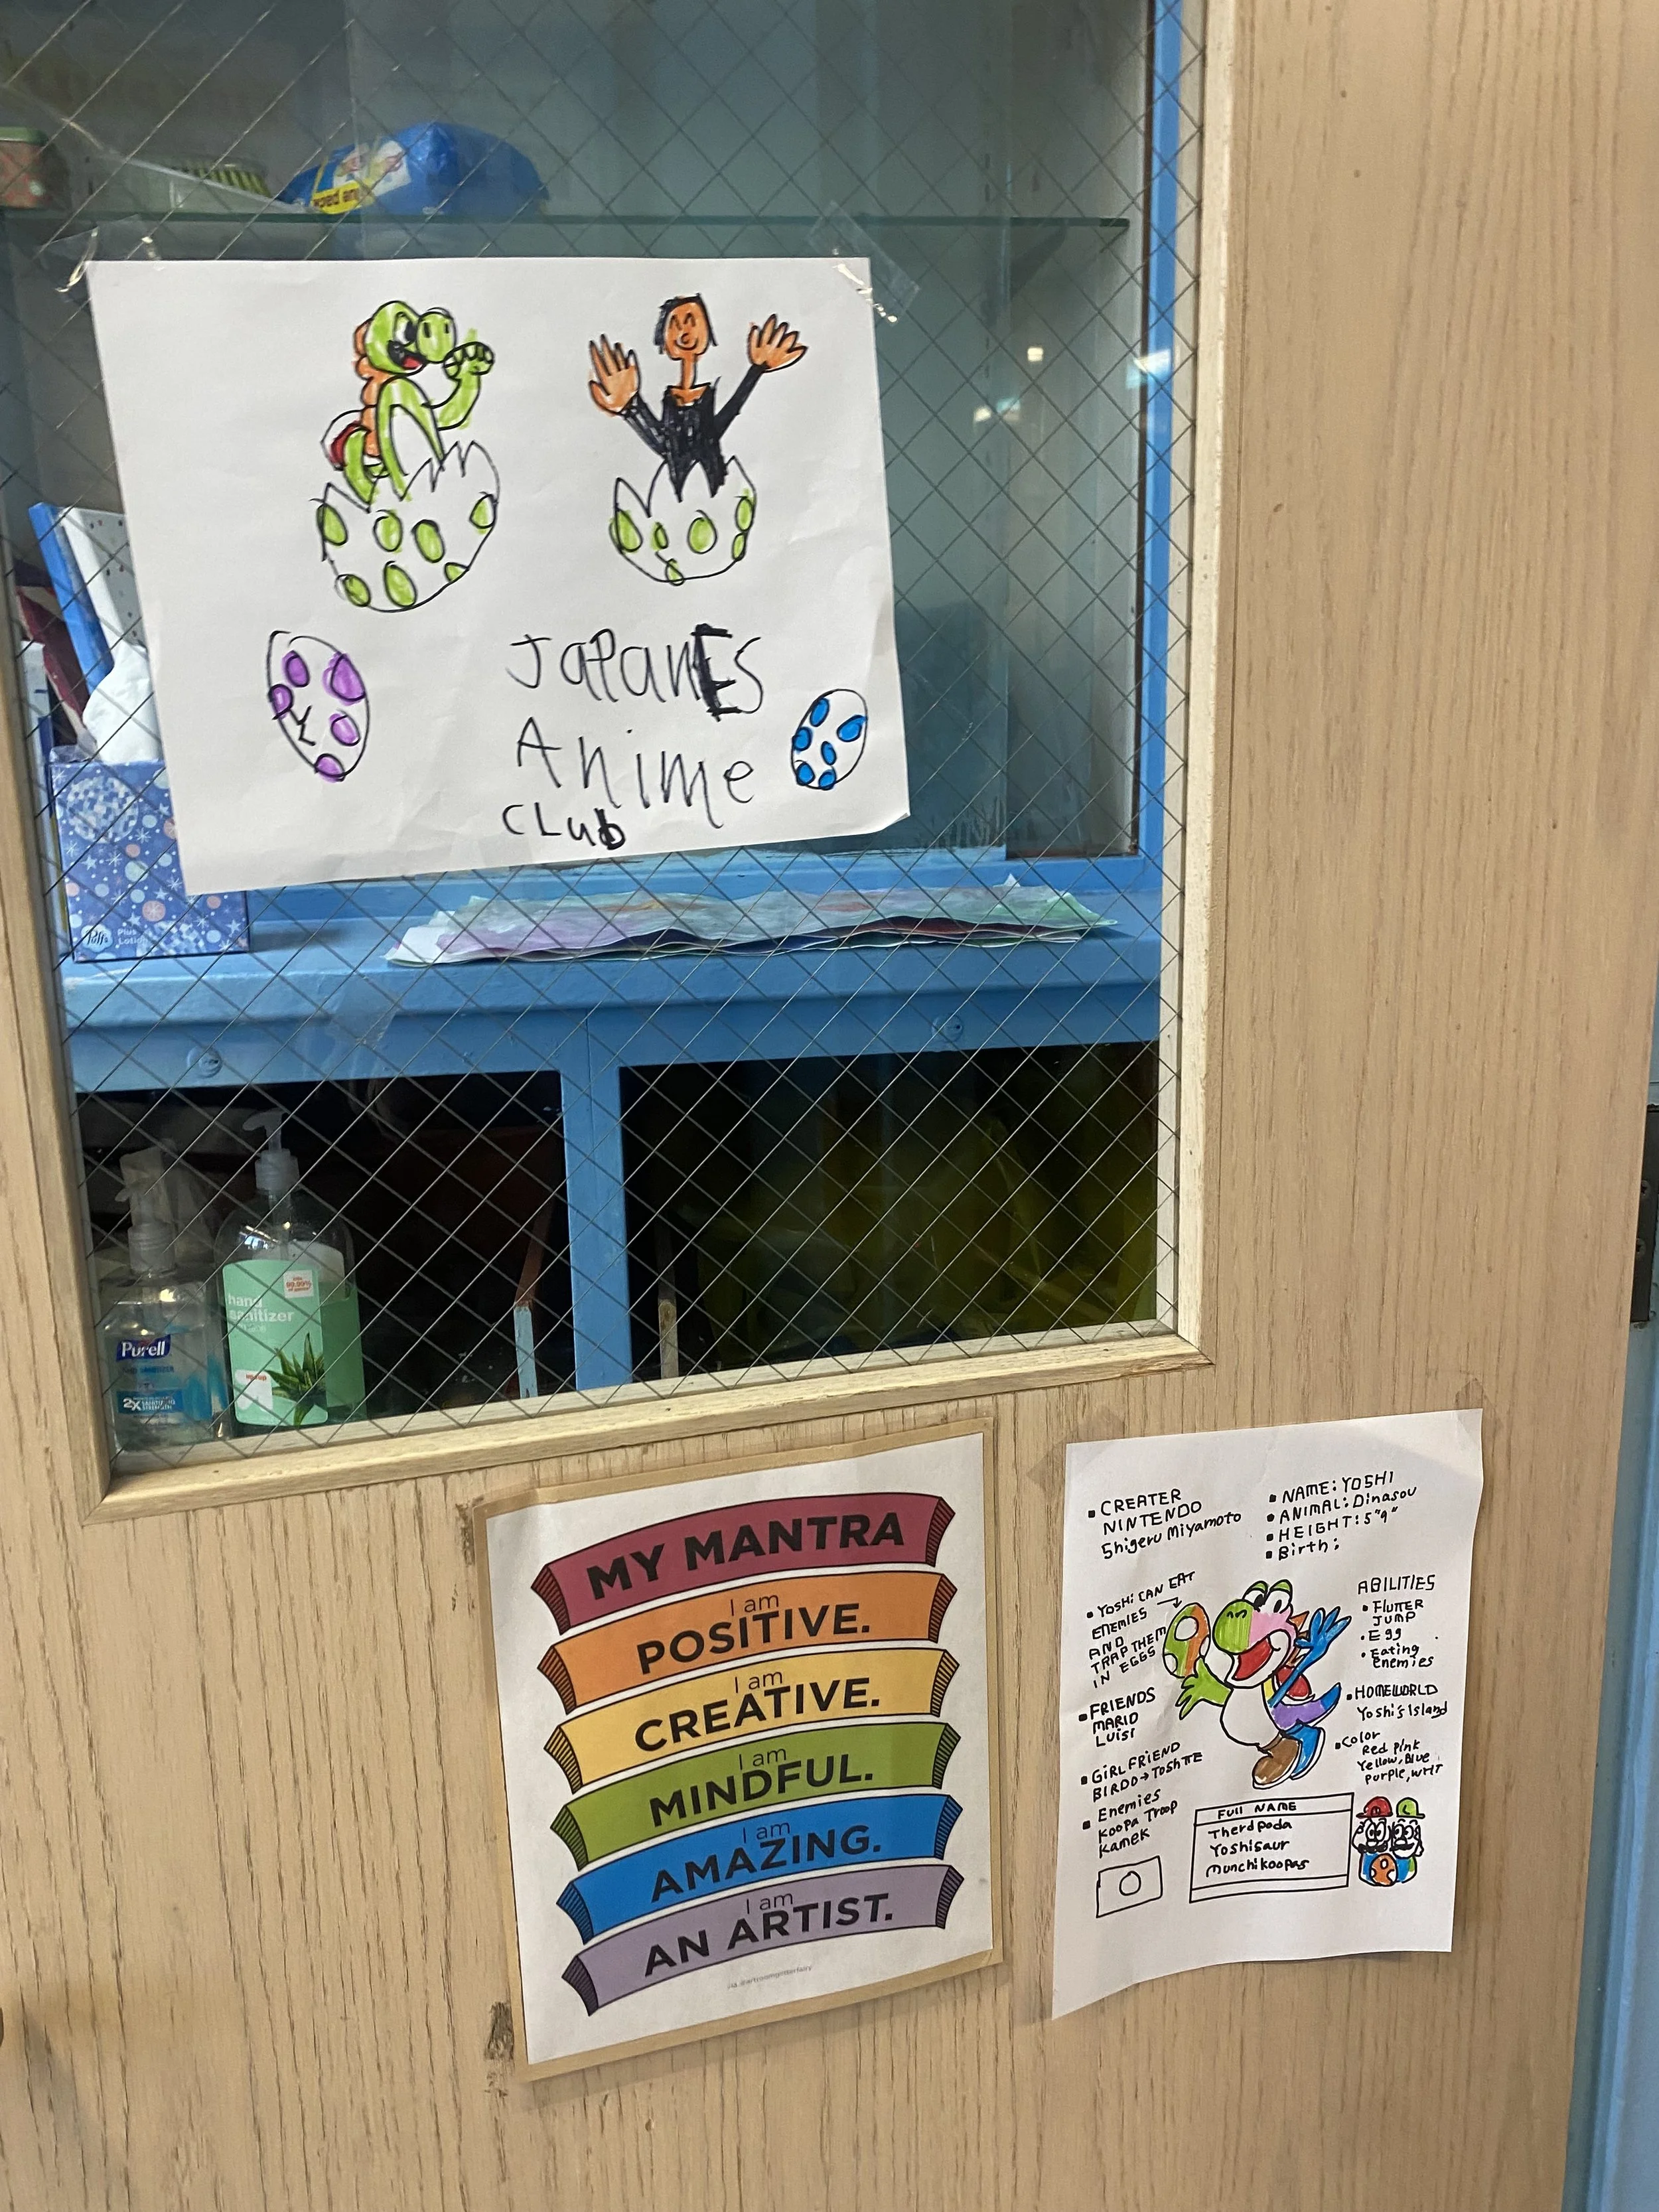 JapanEs
Anime
CLub
Puffs
Plus
Lotion
hand
sanitizer
Purell
2X
MY MANTRA
I am
POSITIVE.
I am
CREATIVE.
I am
MINDFUL.
I am
AMAZING.
I am
AN ARTIST.
▪ CREATER
NINTENDO
Shigeru Miyamoto
▪ NAME: YOSHI
▪ ANIMAL: Dinasou
▪ HEIGHT: 5"9"
▪ Birth:
▪ YOSHI CAN EAT
ENEMIES →
AND
TRAP THEM
IN EGGS
▪ FRIENDS
MARIO
LUISI
▪ GIRLFRIEND
BIRDO → TOSHTTE
▪ Enemies
Koopa Troop
Kamek
ABILITIES
• FLUTTER
JUMP
• Egg
• Eating
Enemies
▪ HOMEWORLD
Yoshi's Island
▪ Color
Red Pink
Yellow, Blue
Purple, WHT
FUll NAME
Therdpoda
Yoshisaur
munchikoopas